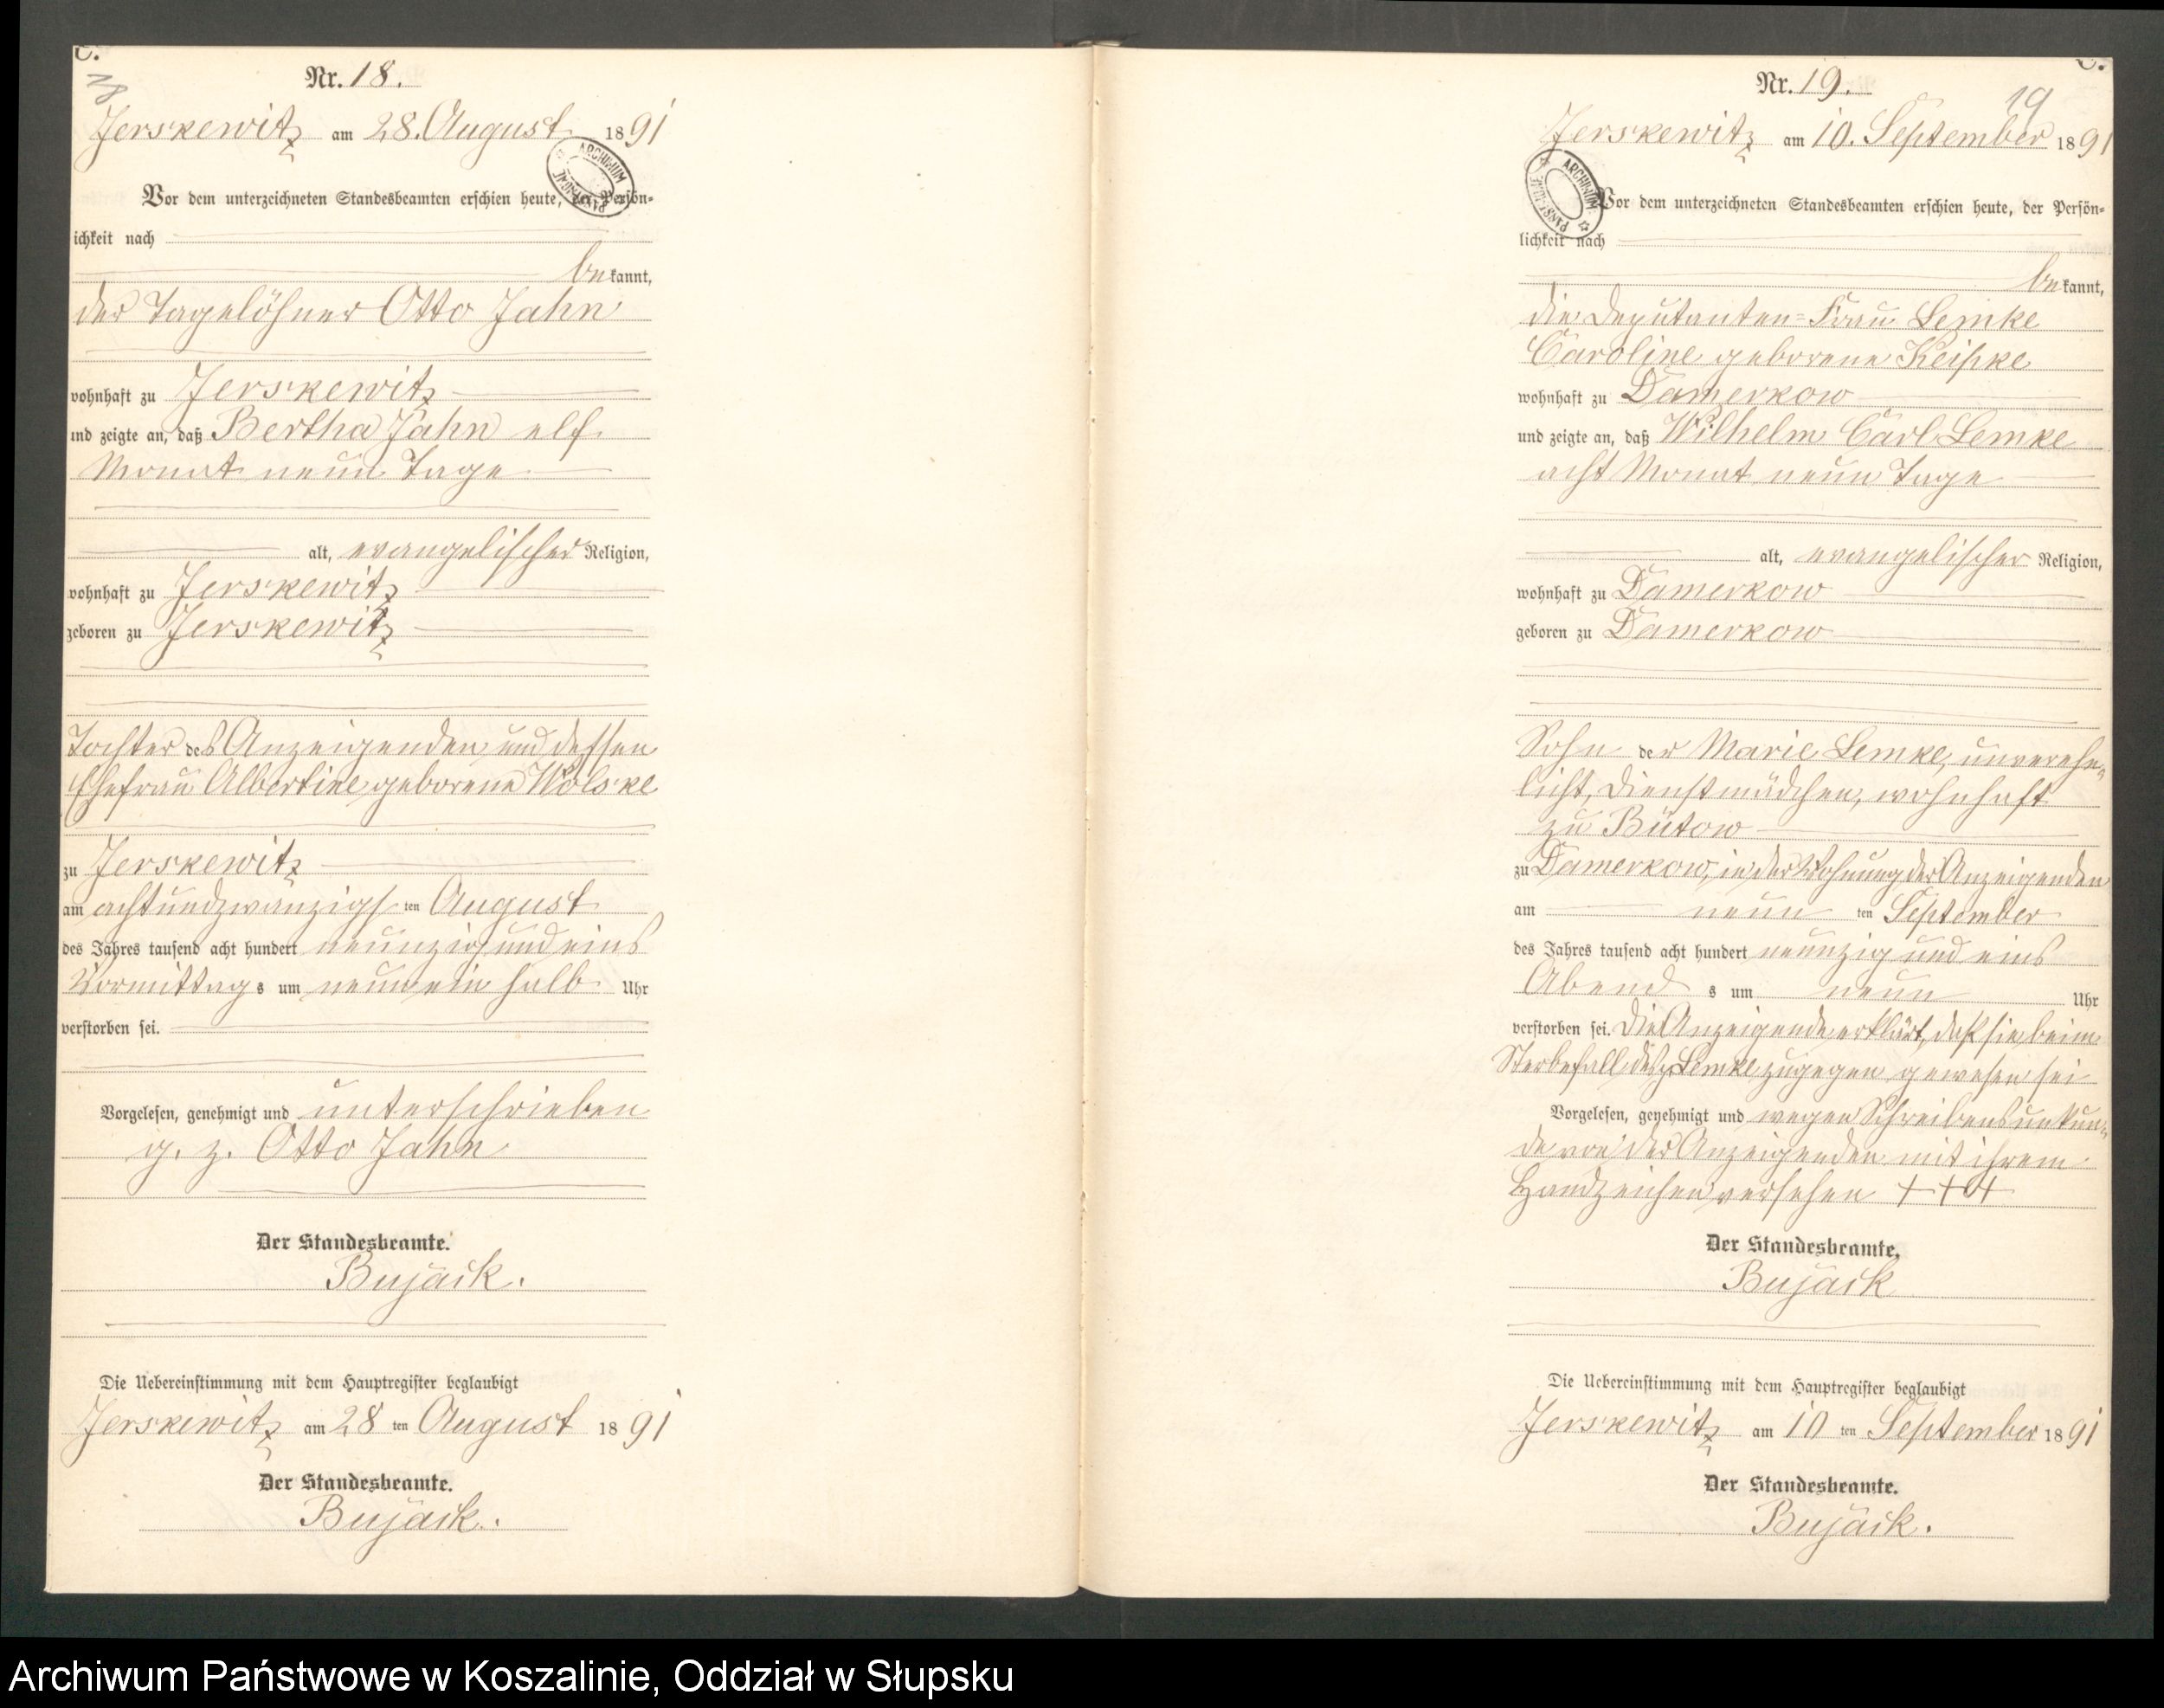 C.
18
Nr. 18.
Jerskewitz am 28. August 1891
ARCHIWUM PAŃSTWOWE
Vor dem unterzeichneten Standesbeamten erschien heute, der Persön-
ichkeit nach
bekannt,
der Tagelöhner Otto Jahn
wohnhaft zu Jerskewitz
und zeigte an, daß Bertha Jahn elf
Monat neun Tage
alt, evangelischer Religion,
wohnhaft zu Jerskewitz
geboren zu Jerskewitz
Tochter des Anzeigenden und dessen
Ehefrau Albertine geborene Wolske
zu Jerskewitz
am achtundzwanzigsten August
des Jahres tausend acht hundert neunzig und eins
Vormittags um neun ein halb Uhr
verstorben sei.
Vorgelesen, genehmigt und unterschrieben
g. z. Otto Jahn
Der Standesbeamte.
Bujack.
Die Uebereinstimmung mit dem Hauptregister beglaubigt
Jerskewitz am 28 ten August 1891
Der Standesbeamte.
Bujack.
C.
19
Nr. 19.
Jerskewitz am 10. September 1891
ARCHIWUM PAŃSTWOWE
Vor dem unterzeichneten Standesbeamten erschien heute, der Persön-
lichkeit nach
bekannt,
die Deputanten-Frau Lemke
Caroline geborene
wohnhaft zu Damerkow
und zeigte an, daß Wilhelm Carl Lemke
acht Monat neun Tage
alt, evangelischer Religion,
wohnhaft zu Damerkow
geboren zu Damerkow
Sohn der Marie Lemke, unverehe-
licht, Dienstmädchen, wohnhaft
zu Bütow
zu Damerkow, in der Wohnung der Anzeigenden
am neun ten September
des Jahres tausend acht hundert neunzig und eins
Abends um neun Uhr
verstorben sei. Die Anzeigende erklärt, daß sie beim
Sterbefall des p Lemke zugegen gewesen sei
Vorgelesen, genehmigt und wegen Schreibensunkun-
de von der Anzeigenden mit ihrem
Handzeichen versehen +++
Der Standesbeamte.
Bujack
Die Uebereinstimmung mit dem Hauptregister beglaubigt
Jerskewitz am 10 ten September 1891
Der Standesbeamte.
Bujack.
Archiwum Państwowe w Koszalinie, Oddział w Słupsku